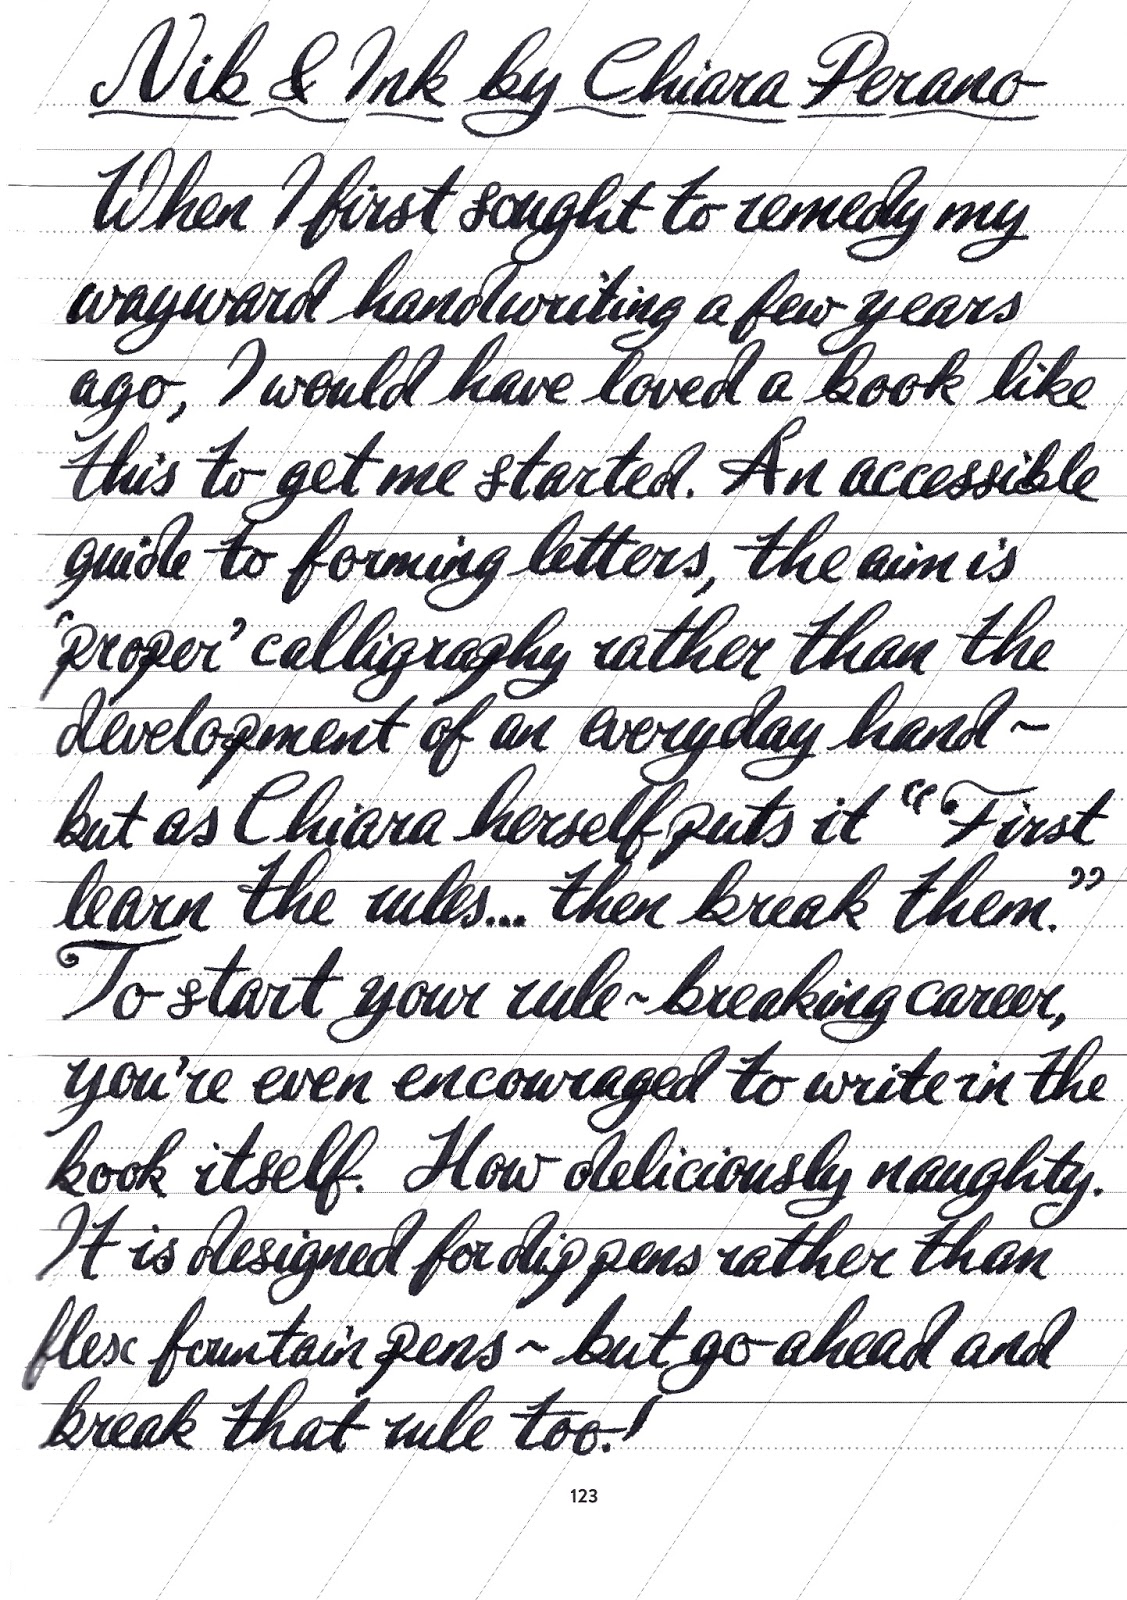 Nib & Ink by Chiara Perano
When I first sought to remedy my
wayward handwriting a few years
ago, I would have loved a book like
this to get me started. An accessible
guide to forming letters, the aim is
'proper' calligraphy rather than the
development of an everyday hand ~
but as Chiara herself puts it “First
learn the rules... then break them.”
To start your rule~breaking career,
you're even encouraged to write in the
book itself. How deliciously naughty.
It is designed for dip pens rather than
flex fountain pens ~ but go ahead and
break that rule too!
123